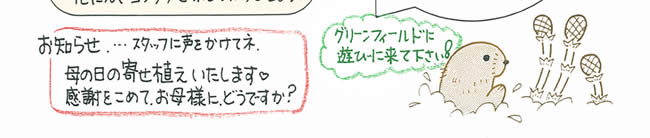 お知らせ・・・スタッフに声をかけてネ.
母の日の寄せ植えいたします♡
感謝をこめて.お母様に.どうですか?
グリーンフィールドに
遊びに来て下さい!